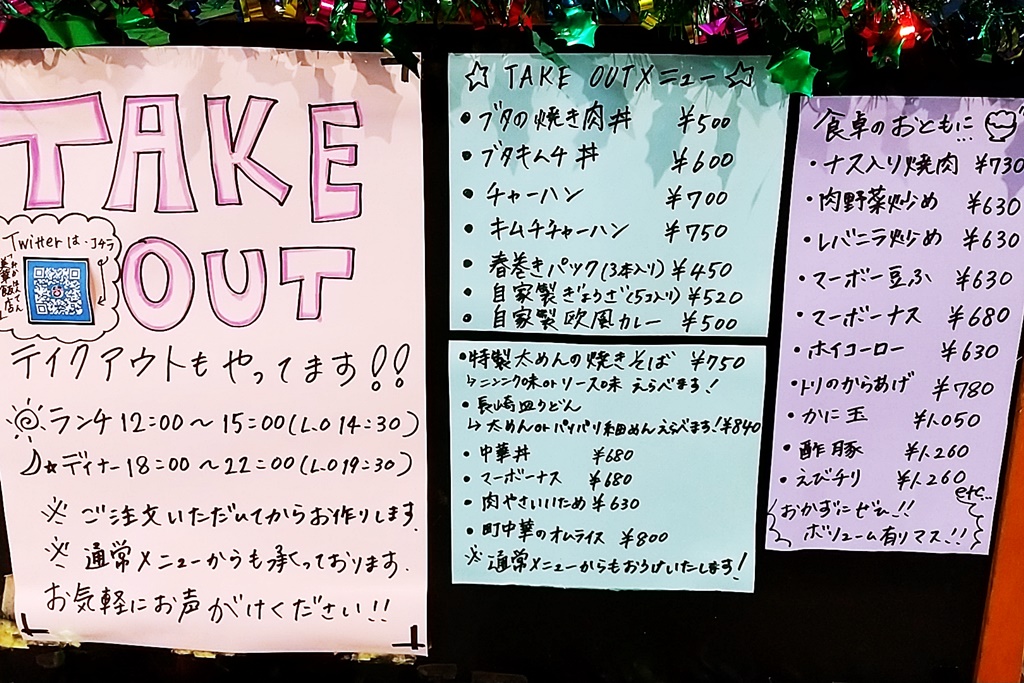 TAKE
OUT
Twitterは、コチラ
テイクアウトもやってます!!
ランチ 12:00〜15:00(L.O 14:30)
ディナー 18:00〜22:00(L.O 19:30)
※ ご注文いただいてからお作りします.
※ 通常メニューからも承っております.
お気軽にお声がけください!!
☆ TAKE OUTメニュー ☆
・ブタの焼き肉丼 ¥500
・ブタキムチ丼 ¥600
・チャーハン ¥700
・キムチチャーハン ¥750
・春巻きパック(3本入り) ¥450
・自家製ぎょうざ(5コ入り) ¥520
・自家製欧風カレー ¥500
・特製太めんの焼きそば ¥750
↳ニンニク味orソース味 えらべます!
・長崎皿うどん
↳太めんorパリパリ細めんえらべます! ¥840
・中華丼 ¥680
・マーボーナス ¥680
・肉やさいいため ¥630
・町中華のオムライス ¥800
※通常メニューからもおうけいたします!
食卓のおともに...
・ナス入り焼肉 ¥730
・肉野菜炒め ¥630
・レバニラ炒め ¥630
・マーボー豆ふ ¥630
・マーボーナス ¥680
・ホイコーロー ¥630
・トリのからあげ ¥780
・かに玉 ¥1.050
・酢豚 ¥1.260
・えびチリ ¥1.260
etc...
おかずにぜひ!!
ボリューム有りマス!!